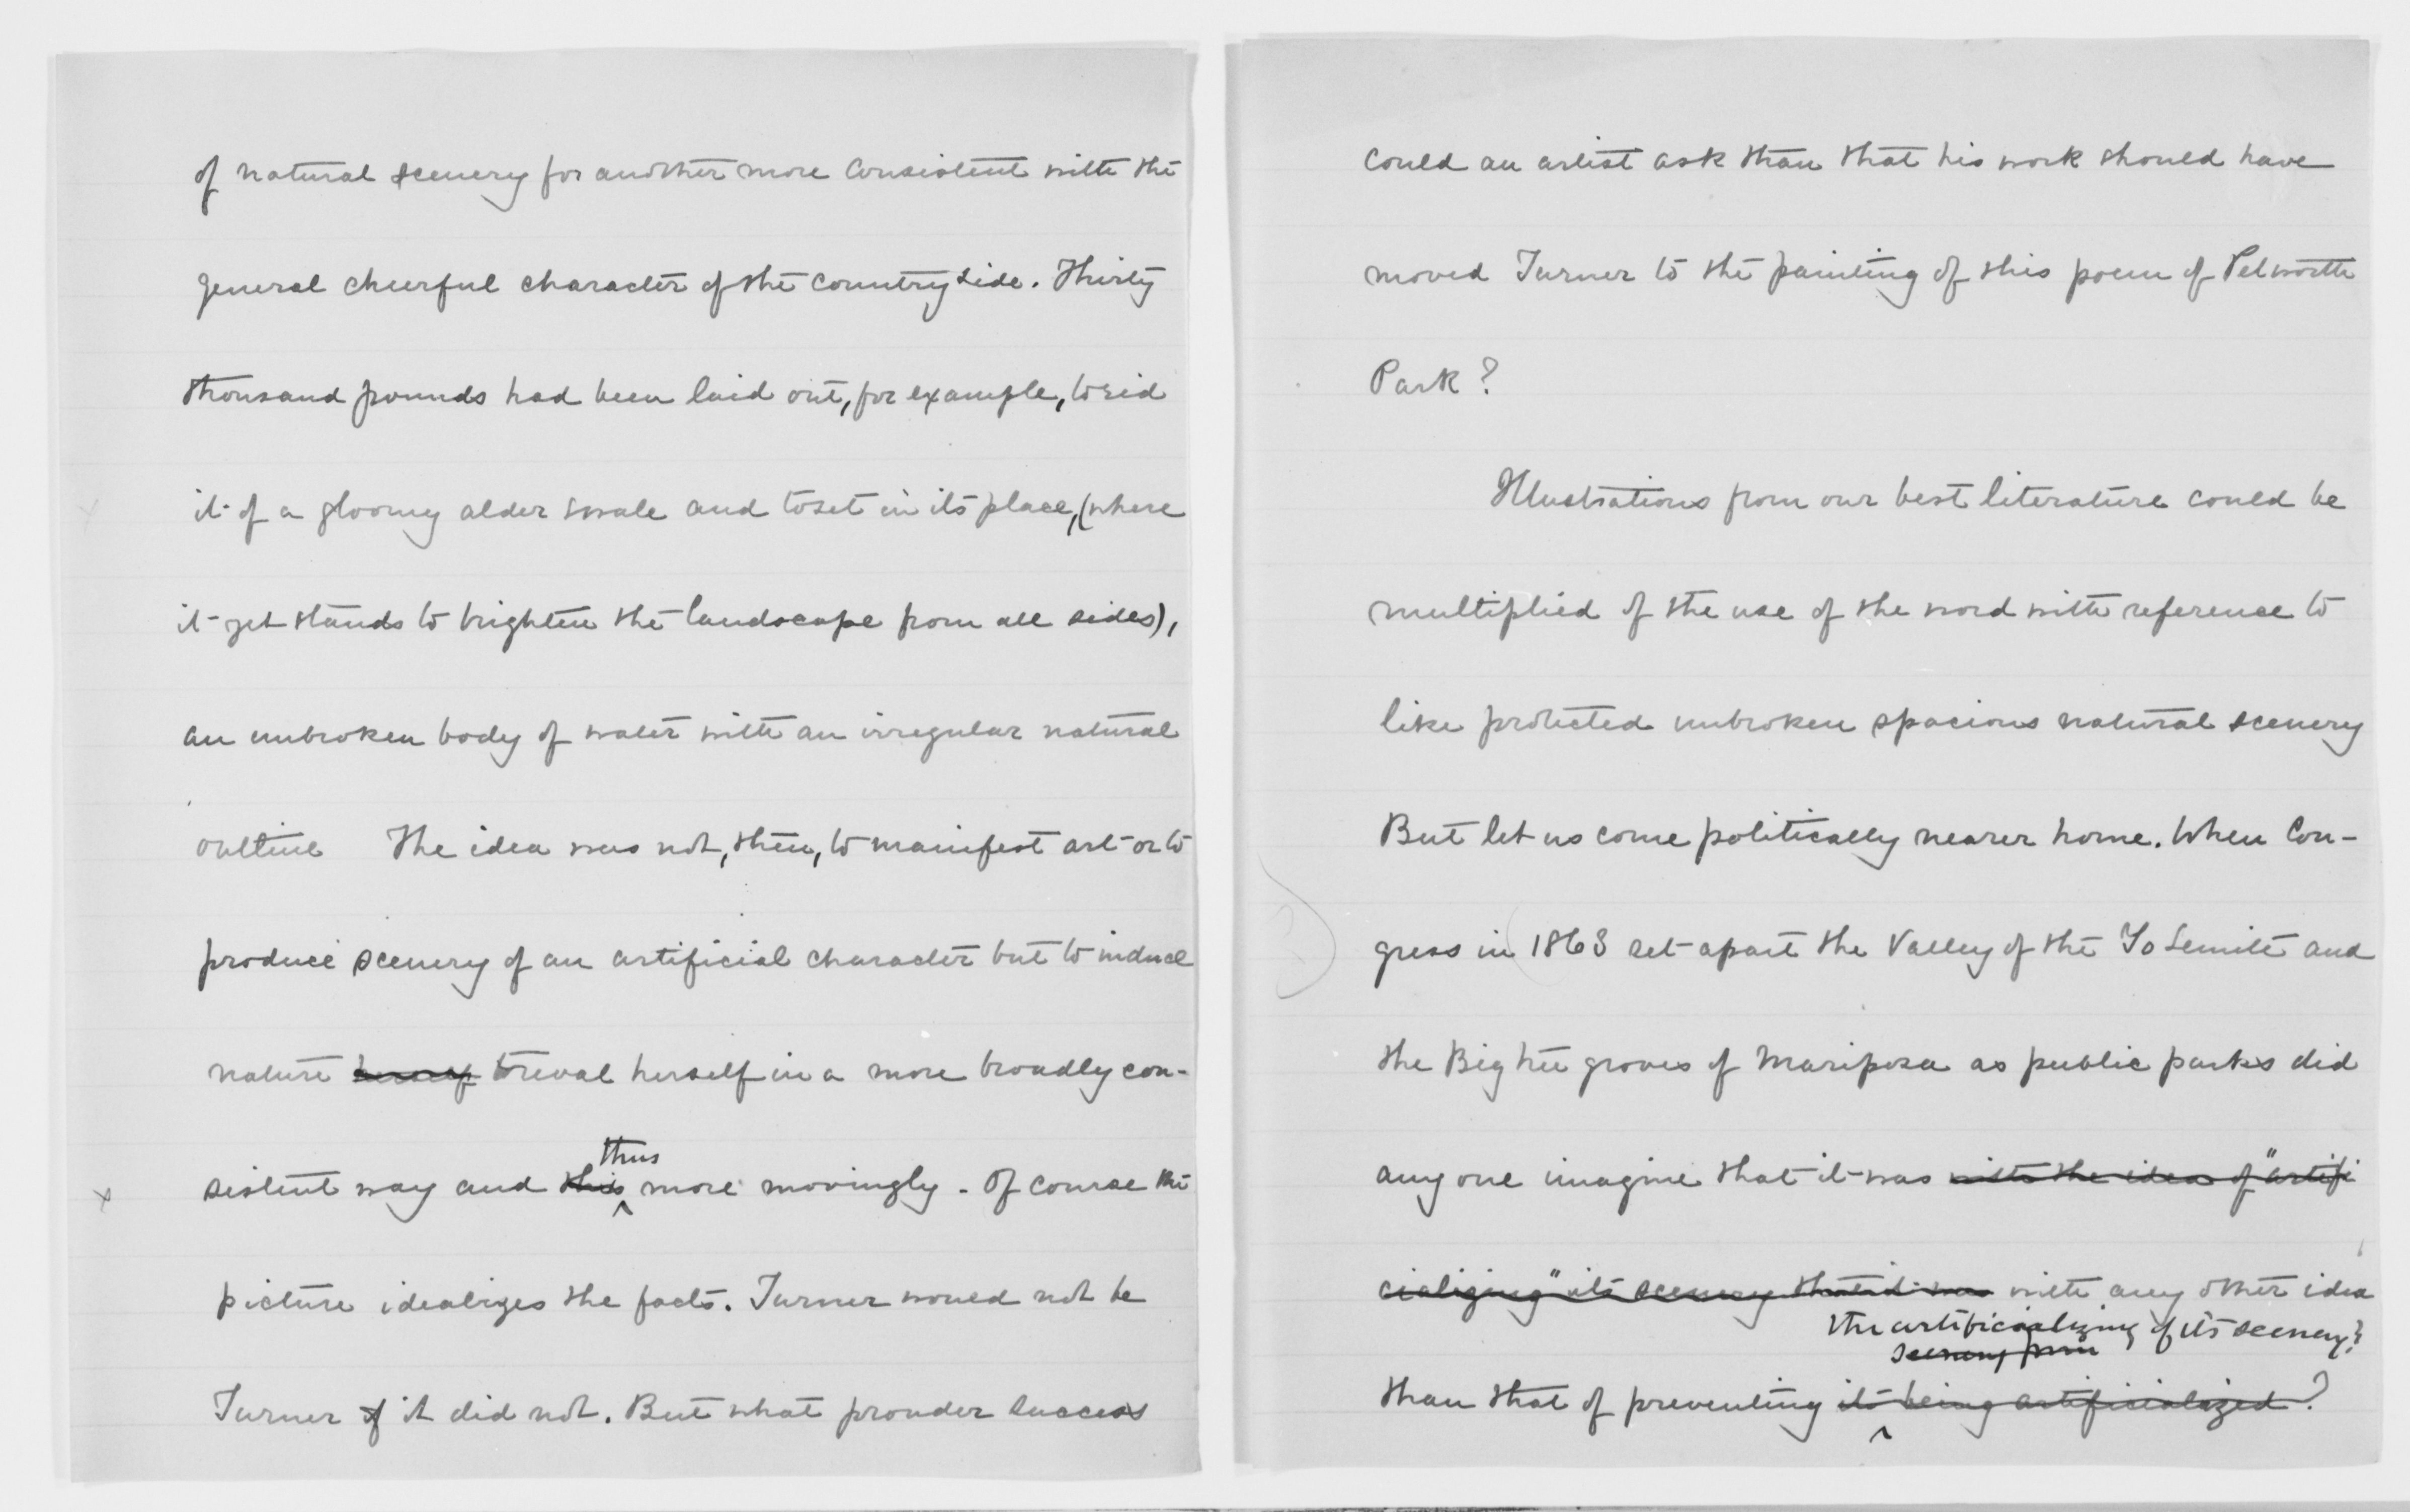 of natural scenery for another more consistent with the
general cheerful character of the country side. Thirty
thousand pounds had been laid out, for example, to rid
it of a gloomy alder swale and to set in its place, (where
it yet stands to brighten the landscape from all sides),
an unbroken body of water with an irregular natural
outline The idea was not, then, to manifest art or to
produce scenery of an artificial character but to induce
nature herself to reval herself in a more broadly con-
thus
sistent way and this more movingly - Of course the
picture idealizes the facts. Turner would not be
Turner if it did not. But what prouder success
could an artist ask than that his work should have
moved Turner to the painting of this poem of Petworth
Park?
Illustrations from our best literature could be
multiplied of the use of the word with reference to
like protected unbroken spacious natural scenery
But let us come politically nearer home. When Con-
gress in 1863 set apart the Valley of the Yo Semite and
the Big tree groves of Mariposa as public parks did
any one imagine that it was with the idea of "artifi
cializing" its scenery that it was with any other idea
the artificializing of its scenery?
scenery from
than that of preventing its being artificialized?